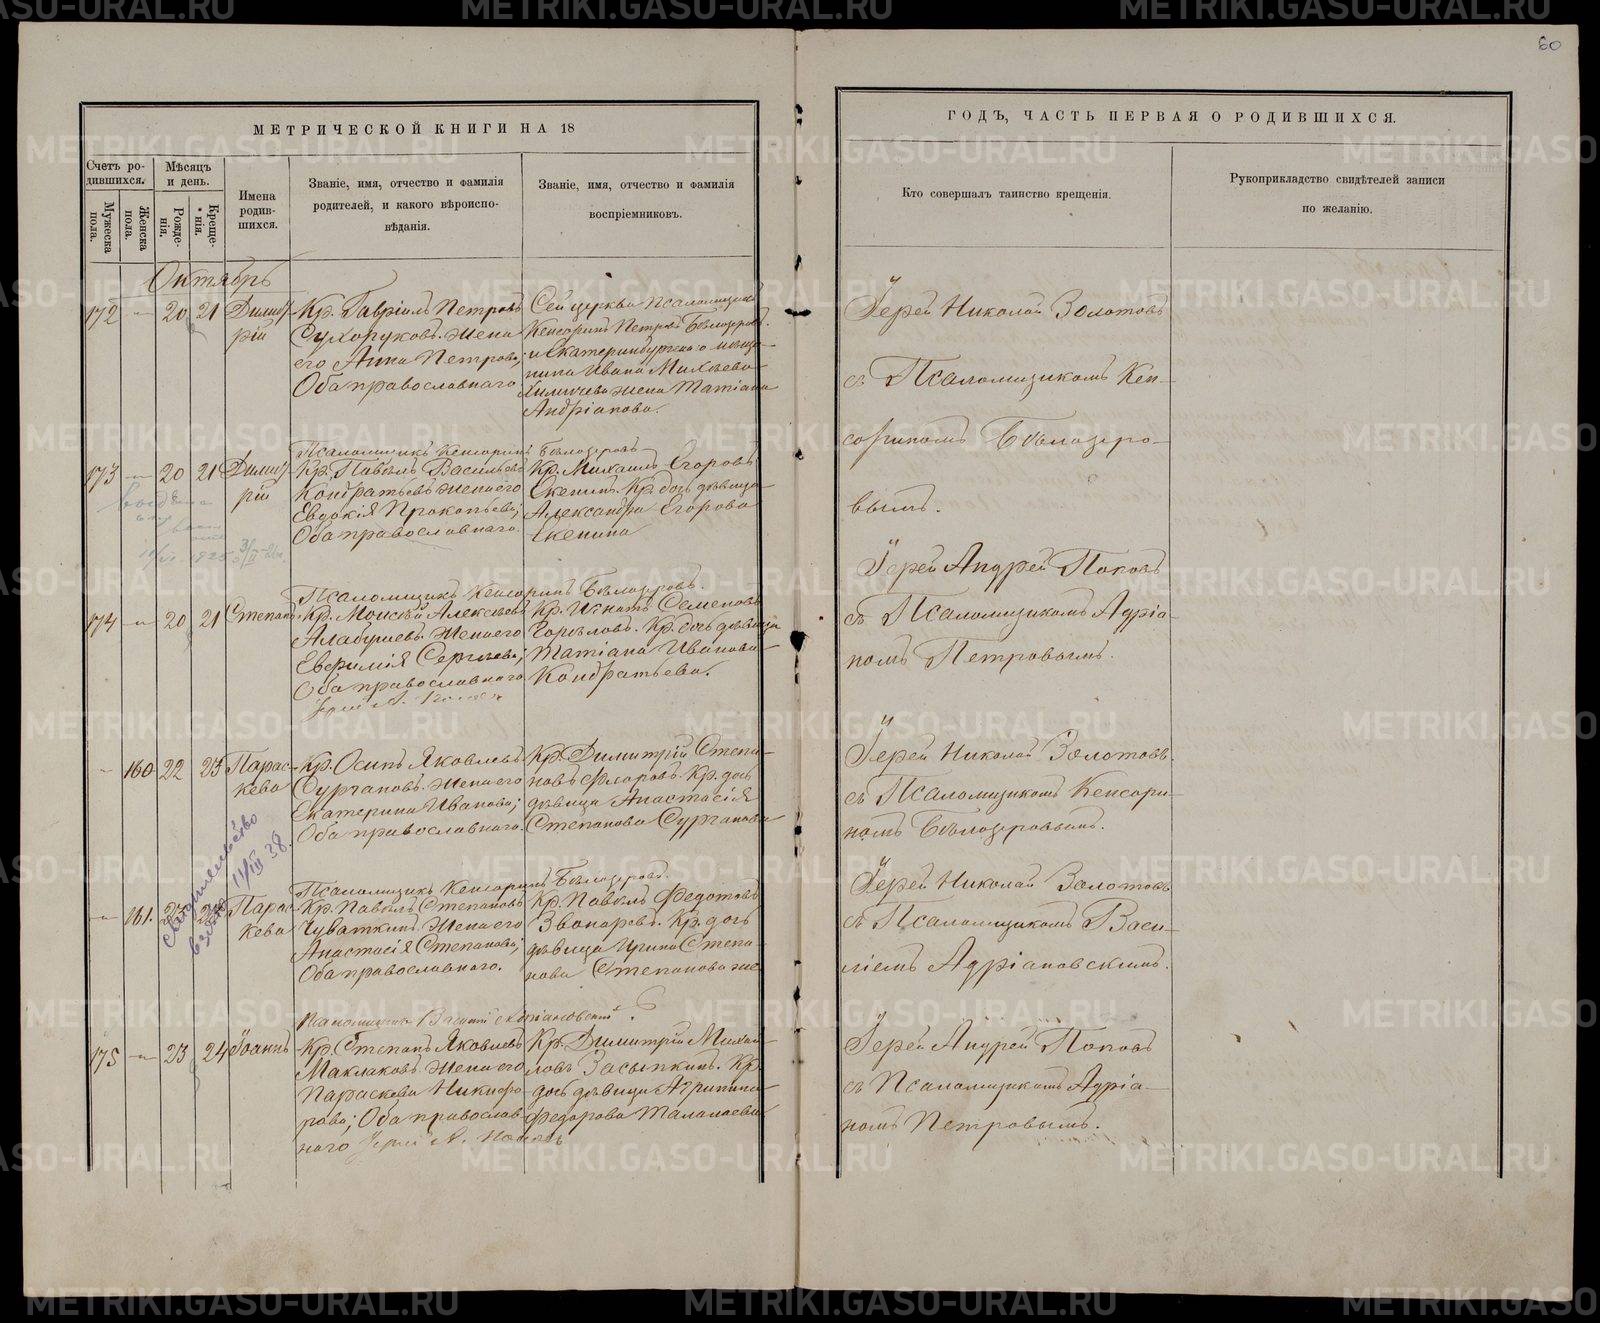 60
МЕТРИЧЕСКОЙ КНИГИ НА 18
ГОДЪ, ЧАСТЬ ПЕРВАЯ О РОДИВШИХСЯ.
Счетъ ро-
дившихся.
Мужеска
пола.
Женска
пола.
Мѣсяцъ
и день.
Рожде-
нія.
Креще-
нія.
Имена
родив-
шихся.
Званіе, имя, отчество и фамилія
родителей, и какого вѣроиспо-
вѣданія.
Званіе, имя, отчество и фамилія
воспріемниковъ.
Кто совершалъ таинство крещенія.
Рукоприкладство свидѣтелей записи
по желанію.
Октябрь
172 20 21 Димит-
рій
Кр. Гавріилъ Петровъ
Сухоруковъ. Жена
его Анна Петрова;
Оба православнаго
Сей церкви Псаломщикъ
Кенсоринъ Петровъ Бѣлозеровъ.
и Екатеринбургскаго мѣща-
нина Ивана Михѣева
жена Татіана
Андріанова.
Іерей Николай Золотовъ
съ Псаломщикомъ Кен-
сориномъ Бѣлозеро-
вымъ.
Псаломщикъ Кенсоринъ Бѣлозеровъ
173 20 21 Димит-
рій
Кр. Павелъ Васильевъ
Кондратьевъ жена его
Евдокія Прокопьева;
Оба православнаго.
Кр. Михаилъ Егоровъ
Екенинъ. Кр. дочь дѣвица
Александра Егорова
Екенина
Іерей Андрей Поповъ
съ Псаломщикомъ Адріа-
номъ Петровымъ.
Псаломщикъ Кенсоринъ Бѣлозеровъ.
174 20 21 Степанъ
Кр. Моисей Алексѣевъ
Алабушевъ. Жена его
Евфимія Сергѣева;
Оба православнаго
Іерей А. Поповъ
Кр. Игнатъ Семеновъ
Горѣловъ. Кр. дочь дѣвица
Татіана Иванова
Кондратьева.
160 22 23 Парас-
кева
Кр. Осипъ Яковлевъ
Сургановъ. Жена его
Екатерина Иванова;
Оба православнаго.
Кр. Димитрій Степа-
новъ Флоровъ. Кр. дочь
дѣвица Анастасія
Степанова Сурганова
Іерей Николай Золотовъ
съ Псаломщикомъ Кенсори-
номъ Бѣлозеровымъ.
Свидѣтельство
взято 11/III 38.
Псаломщикъ Кенсоринъ Бѣлозеровъ.
161. 23 24 Парас-
кева
Кр. Павелъ Степановъ
Чуваткинъ. Жена его
Анастасія Степанова;
Оба православнаго.
Кр. Павелъ Федотовъ
Звонаревъ. Кр. дочь
дѣвица Ирина Степа-
нова Степанова же
Іерей Николай Золотовъ
съ Псаломщикомъ Васи-
ліемъ Адріановскимъ.
Псаломщикъ Василій Адріановскій
175 23 24 Іоаннъ
Кр. Степанъ Яковлевъ
Маклаковъ. Жена его
Параскева Никифо-
рова; Оба православ-
наго Іерей А. Поповъ
Кр. Димитрій Михай-
ловъ Засыпкинъ. Кр.
дочь дѣвица Агрипина
Федорова Талалаева
Іерей Андрей Поповъ
съ Псаломщикомъ Адріа-
номъ Петровымъ.
METRIKI.GASO-URAL.RU